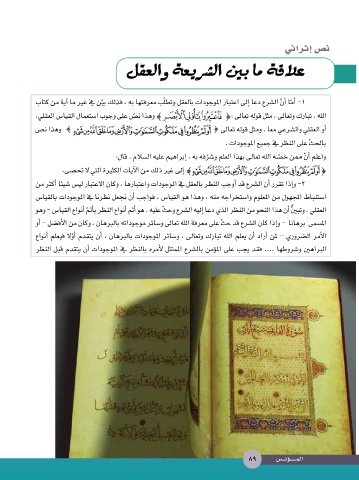 نص إثرائي
علاقة ما بين الشريعة والعقل
١- أمّا أنّ الشرع دعا إلى اعتبار الموجودات بالعقل وتطلّب معرفتها به ، فذلك بيّن في غير ما آية من كتاب
الله ، تبارك وتعالى ، مثل قوله تعالى : ﴿ فَاعْتَبِرُوا يَا أُولِي الْأَبْصَارِ ﴾ وهذا نصّ على وجوب استعمال القياس العقلي،
أو العقلي والشرعي معا . ومثل قوله تعالى ﴿ أَوَلَمْ يَنظُرُوا فِي مَلَكُوتِ السَّمَوَاتِ وَالْأَرْضِ وَمَا خَلَقَ اللَّهُ مِن شَيْءٍ ﴾ وهذا نص
بالحثّ على النظر في جميع الموجودات .
واعلم أنّ ممن خصّه الله تعالى بهذا العلم وشرّفه به ، إبراهيم عليه السلام . قال:
﴿ أَوَلَمْ يَنظُرُوا فِي مَلَكُوتِ السَّمَوَاتِ وَالْأَرْضِ وَمَا خَلَقَ اللَّهُ مِن شَيْءٍ ﴾ إلى غير ذلك من الآيات الكثيرة التي لا تحصى.
٢- وإذا تقرر أن الشرع قد أوجب النظر بالعقل في الموجودات واعتبارها ، وكان الاعتبار ليس شيئًا أكثر من
استنباط المجهول من المعلوم واستخراجه منه ، وهذا هو القياس ، فواجب أن نجعل نظرنا في الموجودات بالقياس
العقلي . وتبيّن أن هذا النحو من النظر الذي دعا إليه الشرع وحثّ عليه ، هو أتم أنواع النظر بأتمّ أنواع القياس – وهو
المسمى برهانًا – وإذا كان الشرع قد حثّ على معرفة الله تعالى وسائر موجوداته بالبرهان ، وكان من الأفضل – أو
الأمر الضروري – لمن أراد أن يعلم الله تبارك وتعالى ، وسائر الموجودات بالبرهان ، أن يتقدم أوّلا فيعلم أنواع
البراهين وشروطها .... فقد يجب على المؤمن بالشرع الممتثل لأمره بالنظر في الموجودات أن يتقدم قبل النظر
المـــؤنــس
٨٩